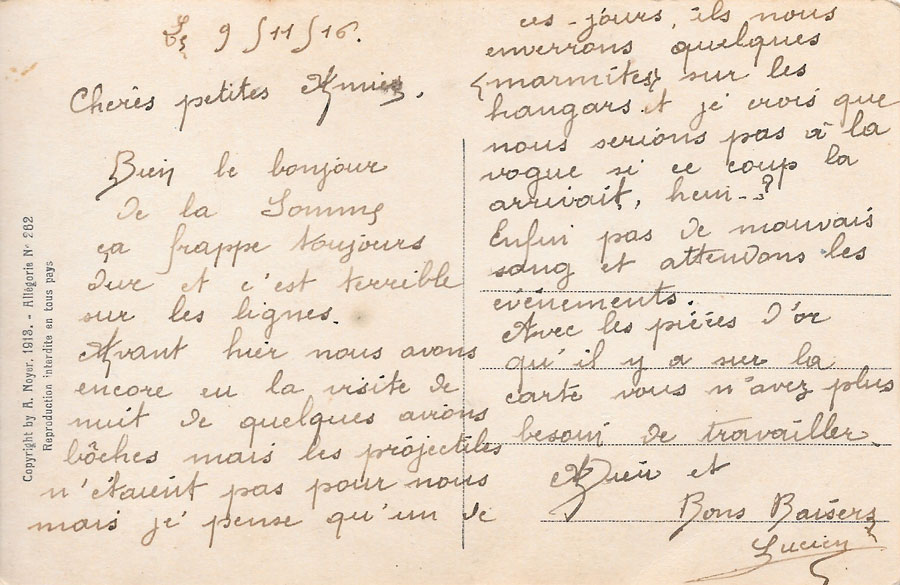 Le 9/11/16.
Cherès petites Amies,
Bien le bonjour
de la Somme
ça frappe toujours
dur et c'est terrible
sur les lignes.
Avant hier nous avons
encore eu la visite de
nuit de quelques avions
bôches mais les projectiles
n'étaient pas pour nous
mais je pense qu'un de
ces-jours, ils nous
enverrons quelques
{marmites} sur les
hangars et je crois que
nous serions pas à la
vogue si ce coup la
arrivait, hein--?
Enfin pas de mauvais
sang et attendons les
événements.
Avec les pièces d'or
qu'il y a sur la
carte vous n'avez plus
besoin de travailler.
Adieu et
Bons Baisers
Lucien
Copyright by A. Noyer, 1913. - Allégorie N° 282
Reproduction interdite en tous pays